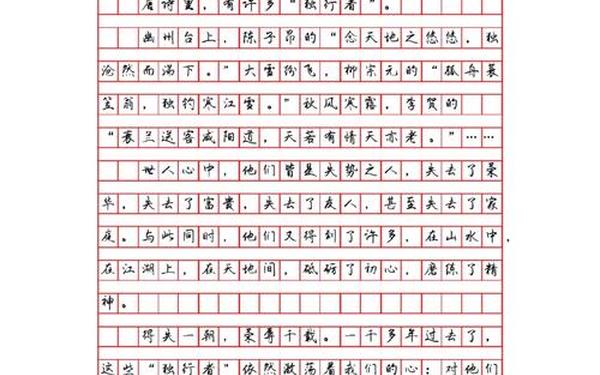 唐诗里，有许多“独行者”。
幽州台上，陈子昂的“念天地之悠悠，独
沧然而涕下。”大雪纷飞，柳宗元的“孤舟蓑
笠翁，独钓寒江雪。”秋风寒露，李贺的
“衰兰送客咸阳道，天若有情天亦老。”……
世人心中，他们皆是失势之人，失去了荣
华，失去了富贵，失去了友人，甚至失去了家
庭。与此同时，他们又得到了许多，在山水中，
在江湖上，在天地间，砥砺了初心，磨练了精
神。
得失一朝，荣辱千载。一千多年过去了，
这些“独行者”依然激荡着我们的心：对他们